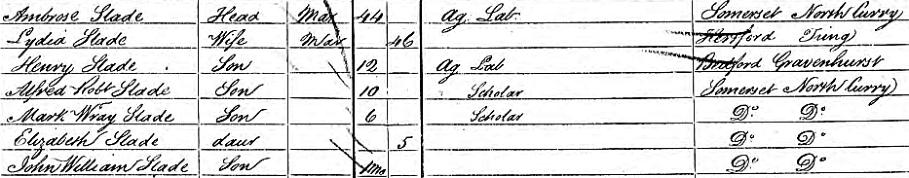 Ambrose Slade Head Mar 44 Ag. Lab. Somerset North Curry
Lydia Slade Wife Mar 46 Hertford Tring
Henry Slade Son 12 Ag Lab Bedford Gravenhurst
Alfred Robt Slade Son 10 Scholar Somerset North Curry
Mark Wray Slade Son 6 Scholar Do Do
Elizabeth Slade daur 5 Do Do
John William Slade Son 1mo Do Do